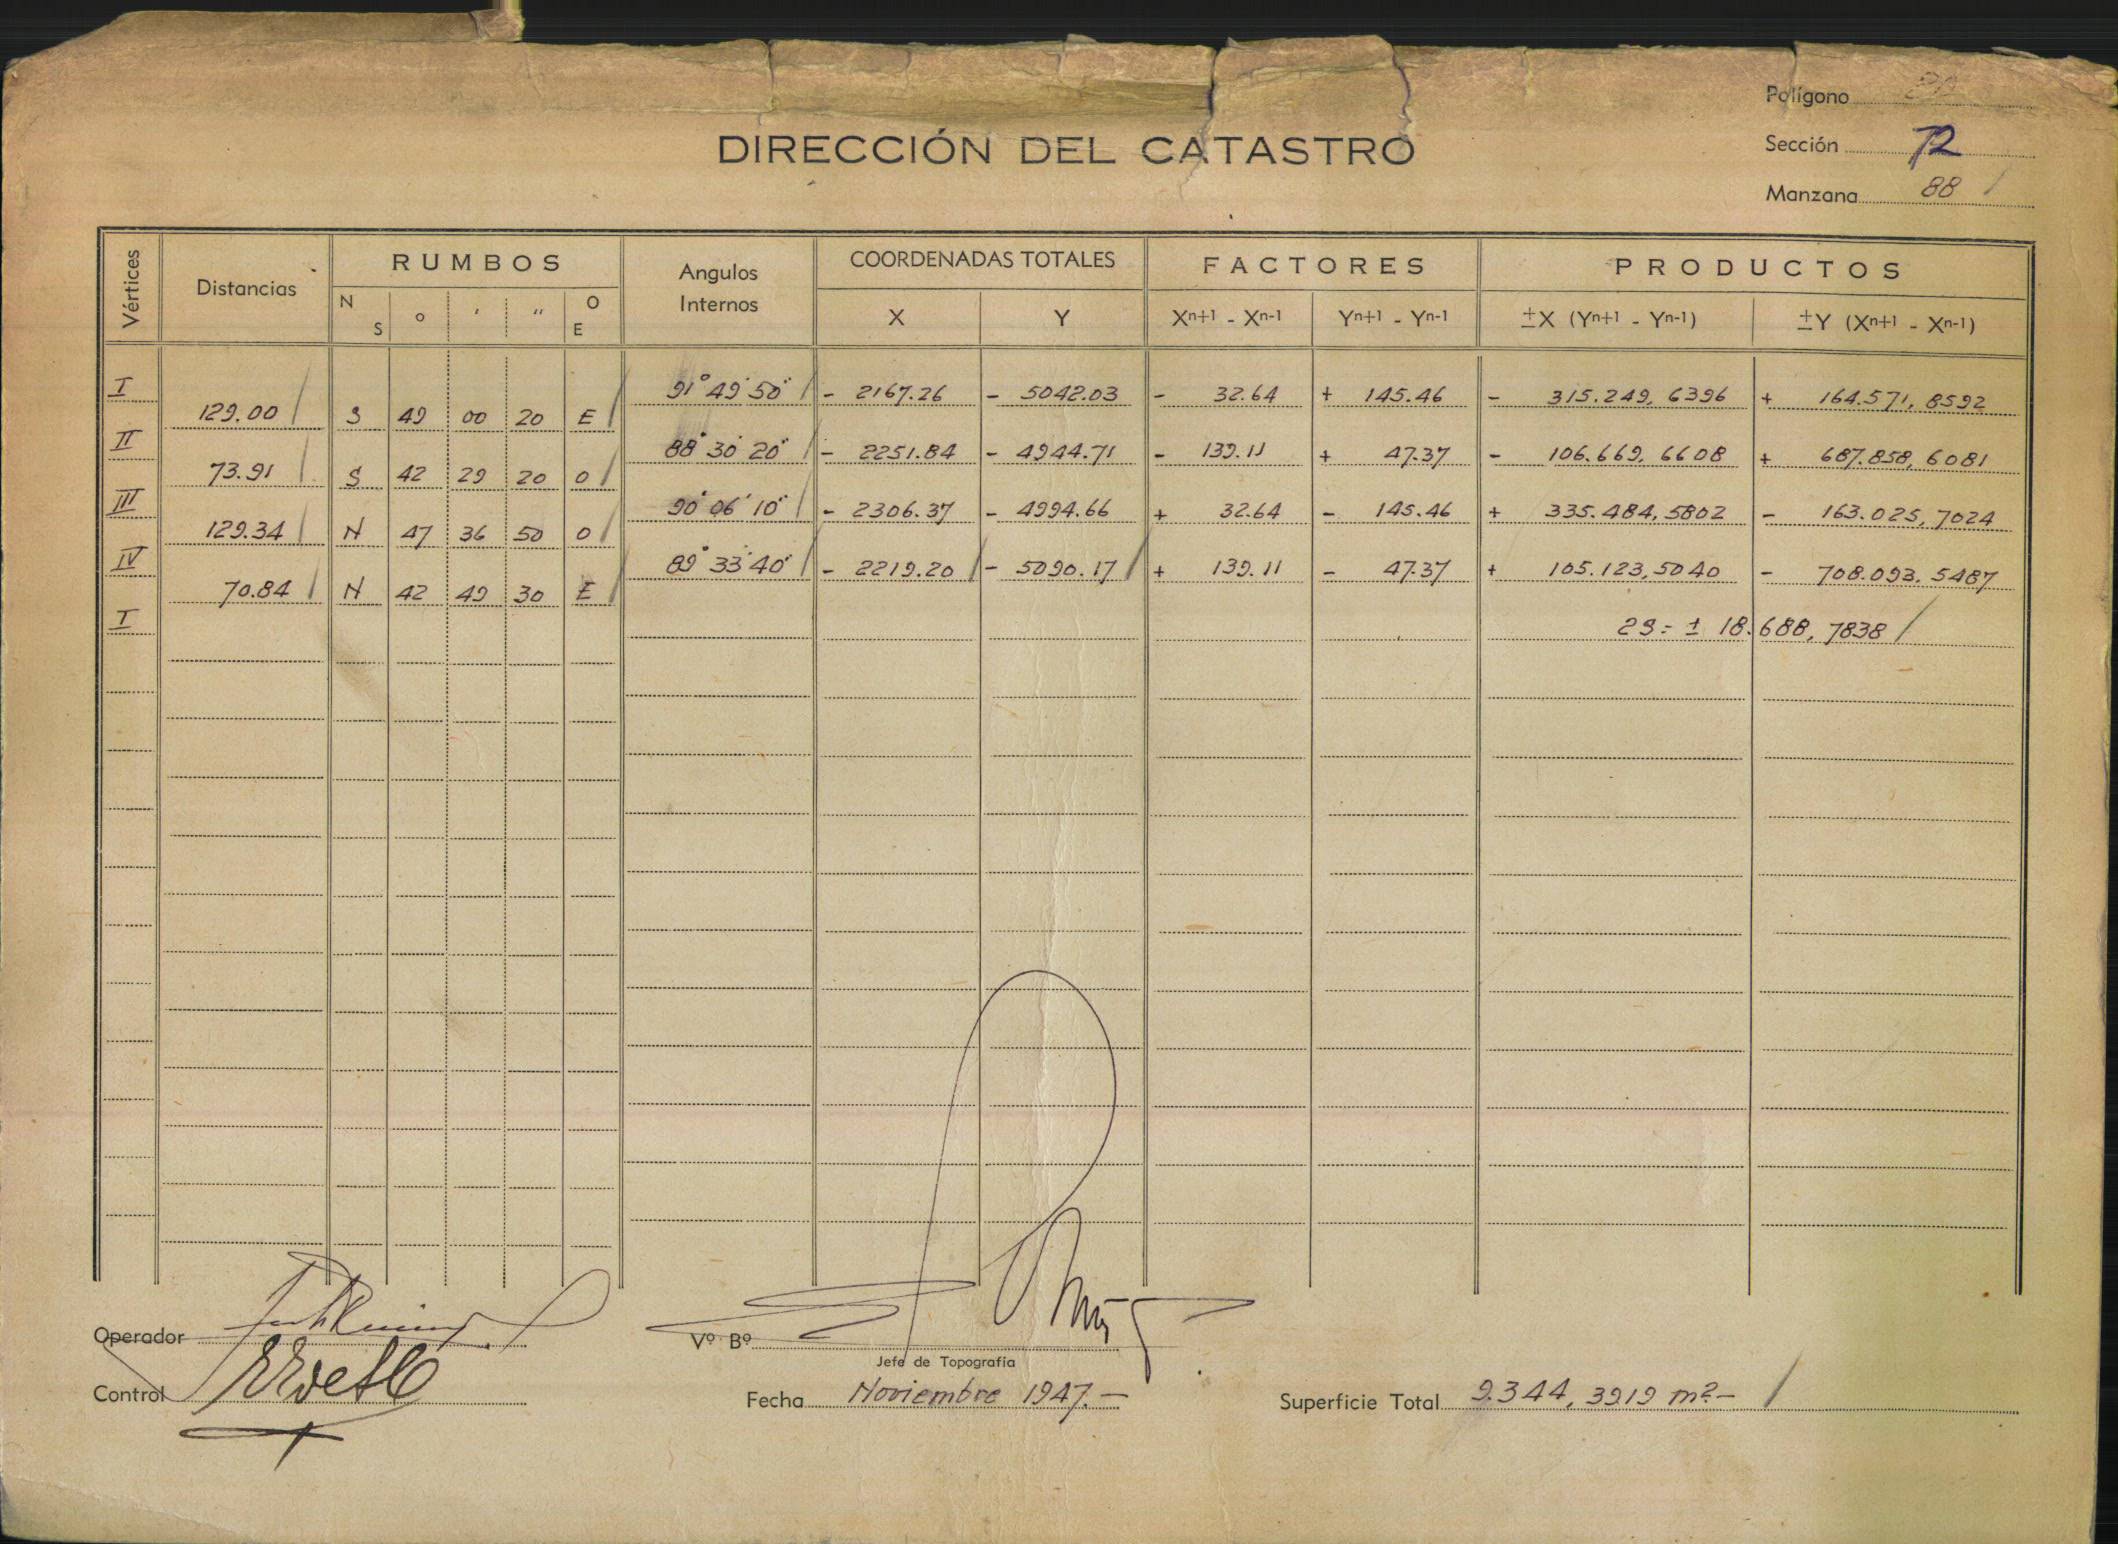 Polígono
DIRECCIÓN DEL CATASTRO
Sección 72
Manzana 88 /
Vértices Distancias RUMBOS Angulos Internos COORDENADAS TOTALES FACTORES PRODUCTOS
N S o ' " O E X Y Xn+1 - Xn-1 Yn+1 - Yn-1 ±X (Yn+1 - Yn-1) ±Y (Xn+1 - Xn-1)
I 91° 49' 50" / - 2167.26 - 5042.03 - 32.64 + 145.46 - 315.249,6396 + 164.571,8592
129.00 / S 49 00 20 E /
II 88° 30' 20" / - 2251.84 - 4944.71 - 139.11 + 47.37 - 106.669,6608 + 687.858,6081
73.91 / S 42 29 20 O /
III 90° 06' 10" / - 2306.37 - 4994.66 + 32.64 - 145.46 + 335.484,5802 - 163.025,7024
129.34 / N 47 36 50 O /
IV 89° 33' 40" / - 2219.20 / - 5090.17 / + 139.11 - 47.37 + 105.123,5040 - 708.093,5487
70.84 / N 42 49 30 E /
I 2S = ± 18.688,7838 /
Operador
Vº Bº
Jefe de Topografía
Control
Fecha Noviembre 1947.-
Superficie Total 9.344,3919 m2- /